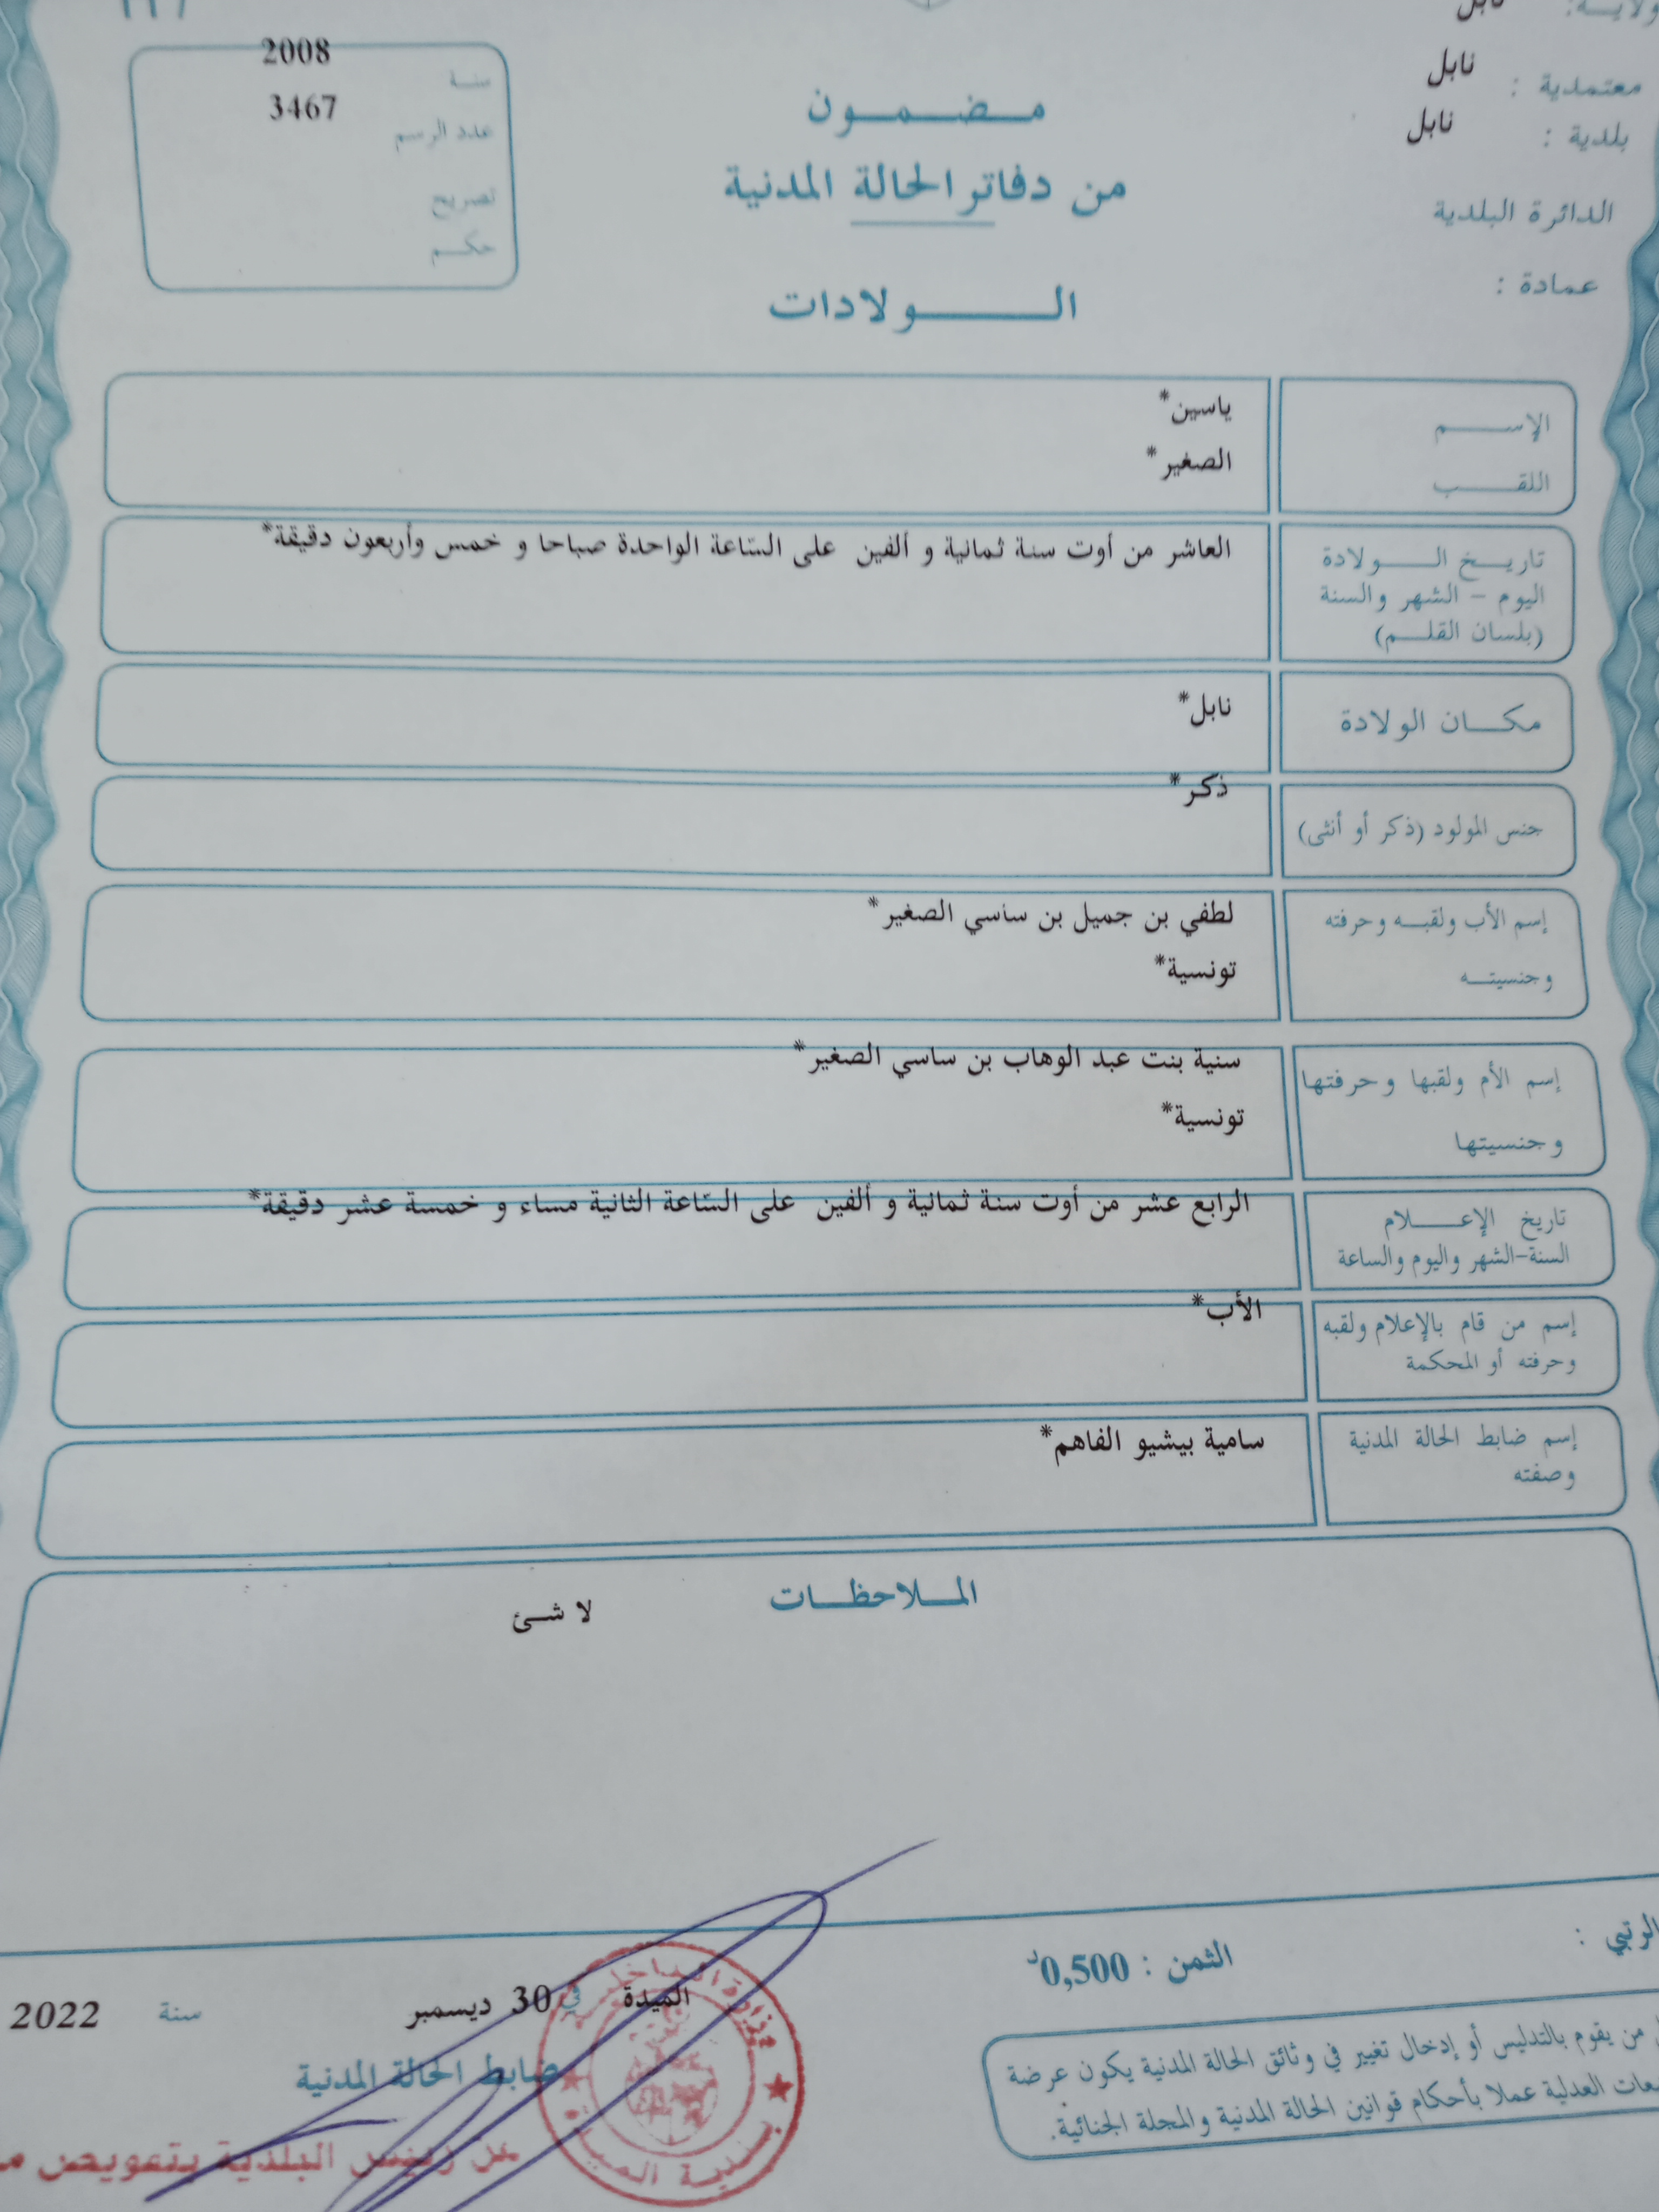 ولاية: نابل
معتمدية : نابل
بلدية : نابل
الدائرة البلدية
عمادة :
مضمون
من دفاتر الحالة المدنية
الولادات
سنة 2008
عدد الرسم 3467
تصريح
حكم
الإسم ياسين*
اللقب الصغير*
تاريخ الولادة العاشر من أوت سنة ثمانية و ألفين على السّاعة الواحدة صباحا و خمس وأربعون دقيقة*
اليوم - الشهر والسنة
(بلسان القلم)
مكان الولادة نابل*
جنس المولود (ذكر أو أنثى) ذكر*
إسم الأب ولقبه وحرفته لطفي بن جميل بن ساسي الصغير*
وجنسيته تونسية*
إسم الأم ولقبها وحرفتها سنية بنت عبد الوهاب بن ساسي الصغير*
وجنسيتها تونسية*
تاريخ الإعلام الرابع عشر من أوت سنة ثمانية و ألفين على السّاعة الثانية مساء و خمسة عشر دقيقة*
السنة-الشهر واليوم والساعة
إسم من قام بالإعلام ولقبه الأب*
وحرفته أو المحكمة
إسم ضابط الحالة المدنية سامية بيشيو الفاهم*
وصفته
الملاحظات
لا شئ
الرتبي :
الثمن : 0,500د
الميدة في 30 ديسمبر سنة 2022
ضابط الحالة المدنية
عن رئيس البلدية بتعويض
وزارة الداخلية
بلدية
من يقوم بالتدليس أو إدخال تغيير في وثائق الحالة المدنية يكون عرضة
العدلية عملا بأحكام قوانين الحالة المدنية والمجلة الجنائية.